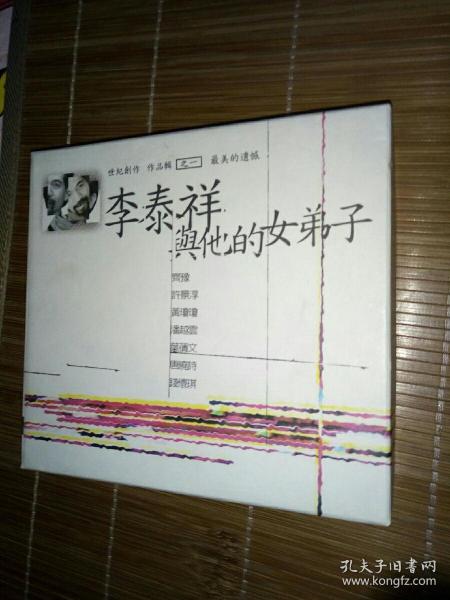 世紀創作 作品輯 之一 最美的遺憾
李泰祥
與他的女弟子
齊豫
許景淳
黃瓊瓊
潘越雲
葉倩文
唐曉詩
錢懷琪
孔夫子旧书网
www.kongfz.com